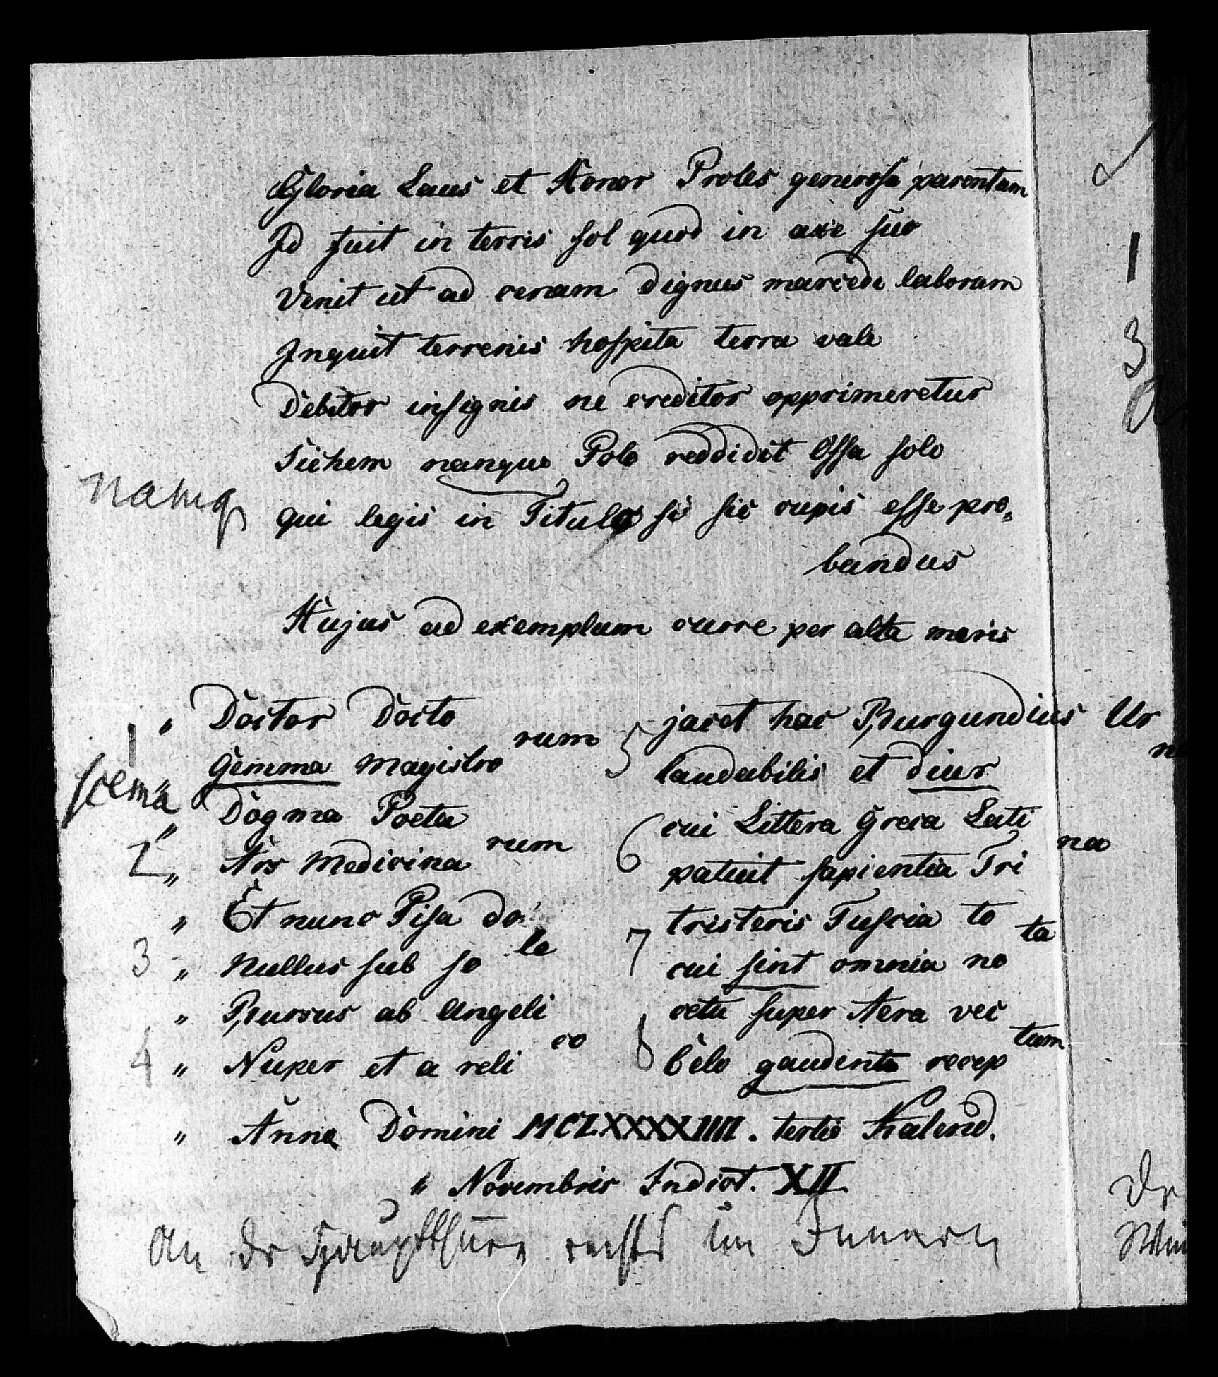 Gloria Laus et Honor Proles generosa parentum
Id fuit in terris sol quod in axe suo
Venit ut ad cenam dignus mercede laboram
Inquit terrenis hospita terra vale
Debitor insignis ne creditor opprimeretur
nanque Polo reddidit Ossa solo
namq
qui legis in Titulo si sic cupis esse pro=
bandus
Hujus ad exemplum curre per alta maris
1 " Doctor Docto
rum
Gemma Magistro
5 jacet hac Burgundius Ur
na
laudabilis et diur
" Dogma Poeta
rum
2 " Ars Medicina
6 cui Littera Greca Lati
na
patuit sapientia Tri
" Et nunc Pisa do
le
3 " Nullus sub so
7 tristeris Tuscia to
ta
cui sint omnia no
" Burrus ab Angeli
co
4 " Nuper et a reli
8 cetu super Aera vec
tum
Celo gaudente recep
" Anno Domini MCLXXXXIIII. tertio Kalend.
" Novembris Indict. XII
An der Hauptthüre rechts im Innern
1
3